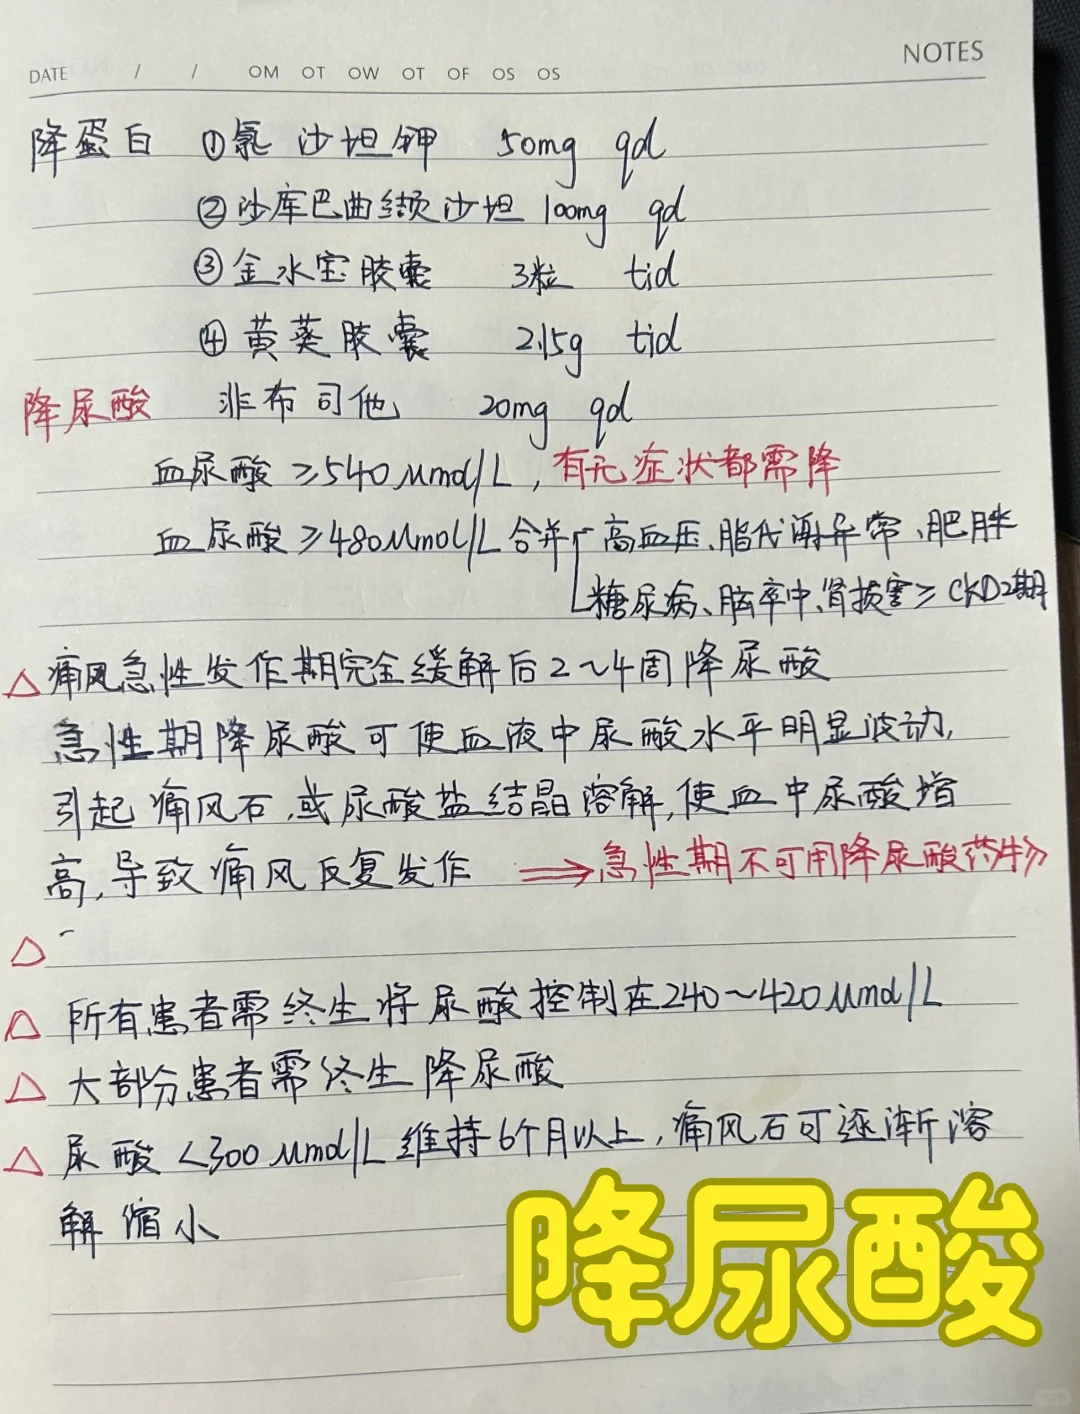 NOTES
DATE / / OM OT OW OT OF OS OS
降蛋白 ①氯沙坦钾 50mg qd
②沙库巴曲缬沙坦 100mg qd
③金水宝胶囊 3粒 tid
④黄葵胶囊 2.15g tid
降尿酸 非布司他 20mg qd
血尿酸≥540μmol/L,有无症状都需降
血尿酸≥480μmol/L合并 高血压、脂代谢异常、肥胖
糖尿病、脑卒中、肾损害≥CKD2期
△痛风急性发作期完全缓解后2~4周降尿酸
急性期降尿酸可使血液中尿酸水平明显波动,
引起痛风石,或尿酸盐结晶溶解,使血中尿酸增
高,导致痛风反复发作 ⟹急性期不可用降尿酸药物
△
△所有患者需终生将尿酸控制在240~420μmol/L
△大部分患者需终生降尿酸
△尿酸<300μmol/L维持6个月以上,痛风石可逐渐溶
解缩小
降尿酸